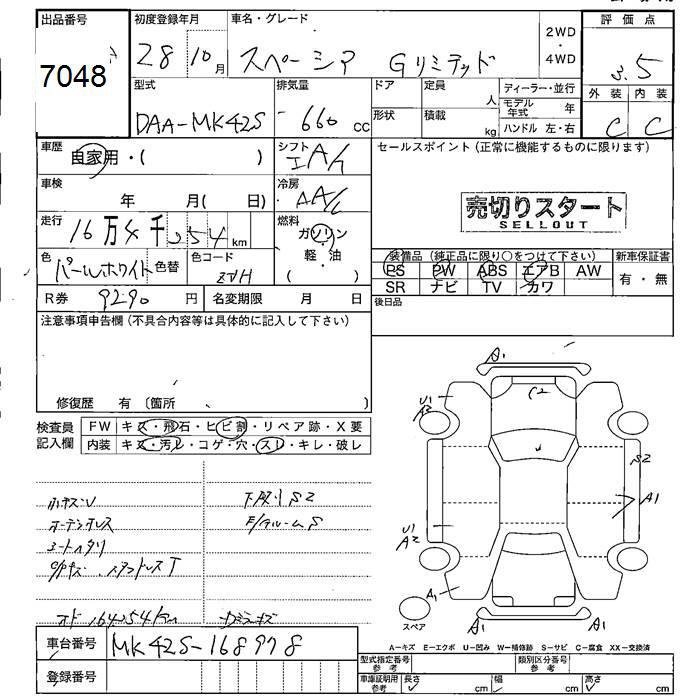 出品番号
7048
初度登録年月
28 10月
車名・グレード
スペーシア Gリミテッド
2WD
・
4WD
評価点
3.5
外装 内装
C C
型式
DAA-MK42S
排気量
660 cc
ドア 定員 人
形状 積載 kg
ディーラー・並行
モデル年式 年
ハンドル 左・右
車歴
自家用・( )
シフト
IA/
車検
年 月( 日)
冷房
AA/C
走行
16万4千054 km
燃料
ガソリン
軽・油
( )
色
パールホワイト
色替
色コード
ZVH
R券 9290 円
名変期限 月 日
セールスポイント (正常に機能するものに限ります)
売切りスタート
SELLOUT
装備品 (純正品に限り○をつけて下さい)
PS PW ABS エアB AW
SR ナビ TV カワ
新車保証書
有・無
後日品
注意事項申告欄 (不具合内容等は具体的に記入して下さい)
修復歴 有 〔箇所 〕
検査員
記入欄
FW キズ・飛石・ヒビ割・リペア跡・X要
内装 キズ・汚レ・コゲ・穴・スレ・キレ・破レ
下廻りS2
オド164054km
車台番号 MK42S-168978
登録番号
A1
C2
U1
A2
S2
A1
U1
A2
A1
A1
A1
スペア
A-キズ E-エクボ U-凹み W-補修跡 S-サビ C-腐食 XX-交換済
型式指定番号
参考
類別区分番号
参考
車庫証明用
参考
長さ cm
幅 cm
高さ cm